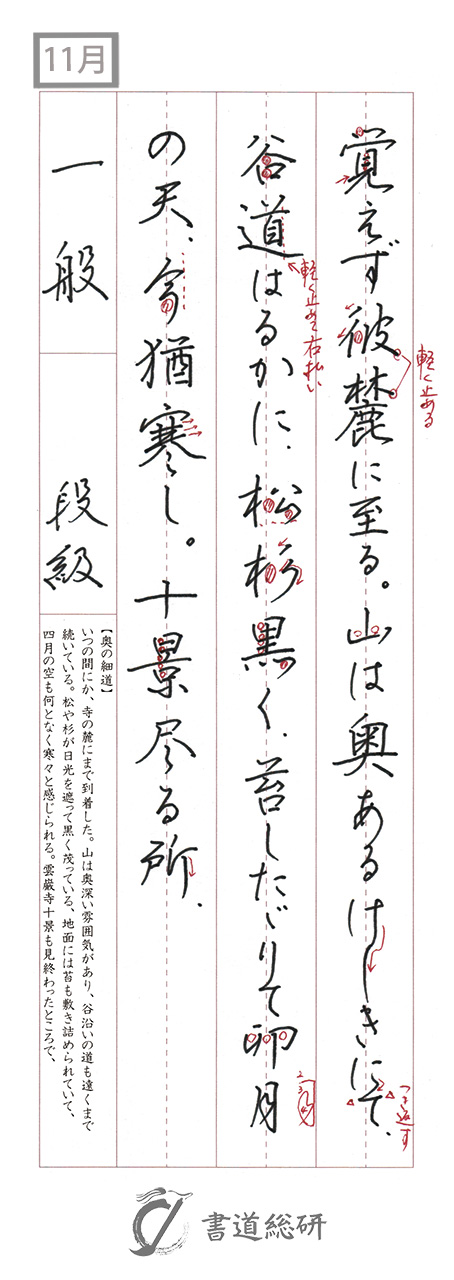 11月
覚えず彼麓に至る。山は奥あるけしきにて、
軽く止める
つき返す
谷道はるかに、松杉黒く、苔したゞりて卯月
軽く止めて右払い
の天、今猶寒し。十景尽る所、
一般 段級
【奥の細道】
いつの間にか、寺の麓にまで到着した。山は奥深い雰囲気があり、谷沿いの道も遠くまで
続いている。松や杉が日光を遮って黒く茂っている、地面には苔も敷き詰められていて、
四月の空も何となく寒々と感じられる。雲巌寺十景も見終わったところで、
書道総研